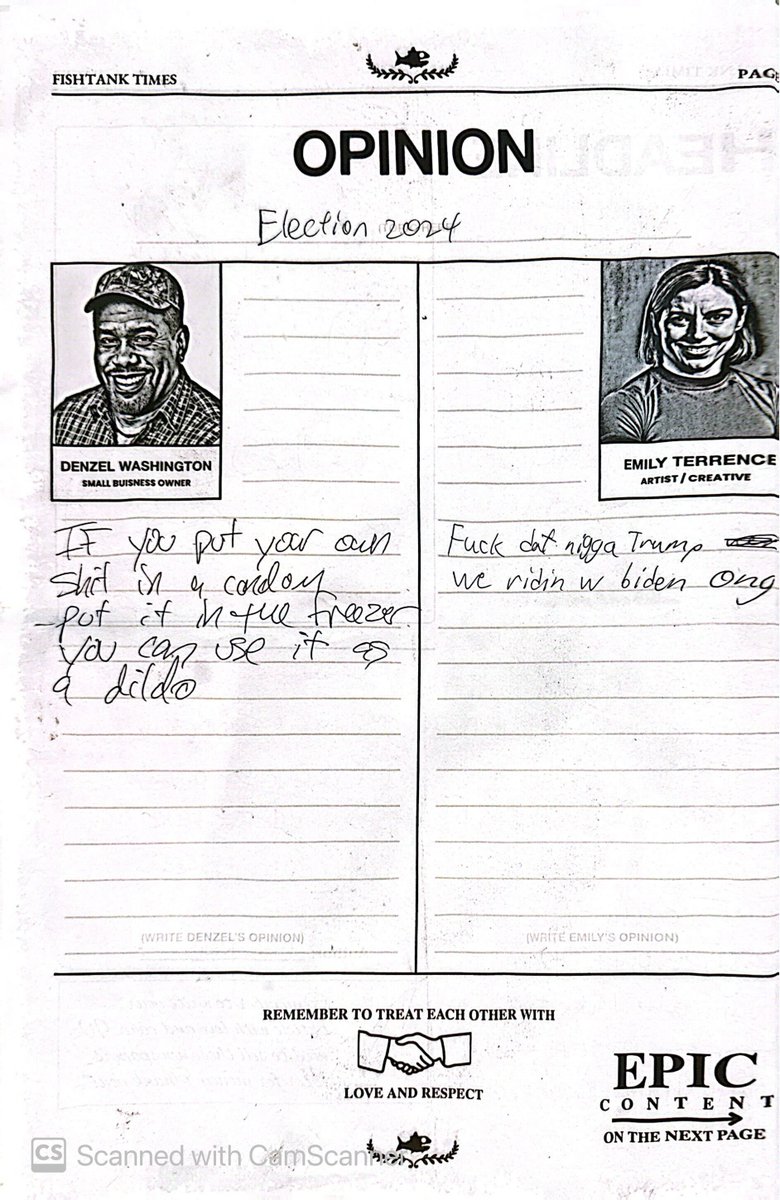 FISHTANK TIMES
PAG
OPINION
Election 2024
DENZEL WASHINGTON
SMALL BUISNESS OWNER
If you put your own
shit in a condom
put it in the freezer
you can use it as
a dildo
(WRITE DENZEL'S OPINION)
EMILY TERRENCE
ARTIST / CREATIVE
Fuck dat nigga Trump
we ridin w biden ong
(WRITE EMILY'S OPINION)
REMEMBER TO TREAT EACH OTHER WITH
LOVE AND RESPECT
EPIC
CONTENT
ON THE NEXT PAGE
CS Scanned with CamScanner